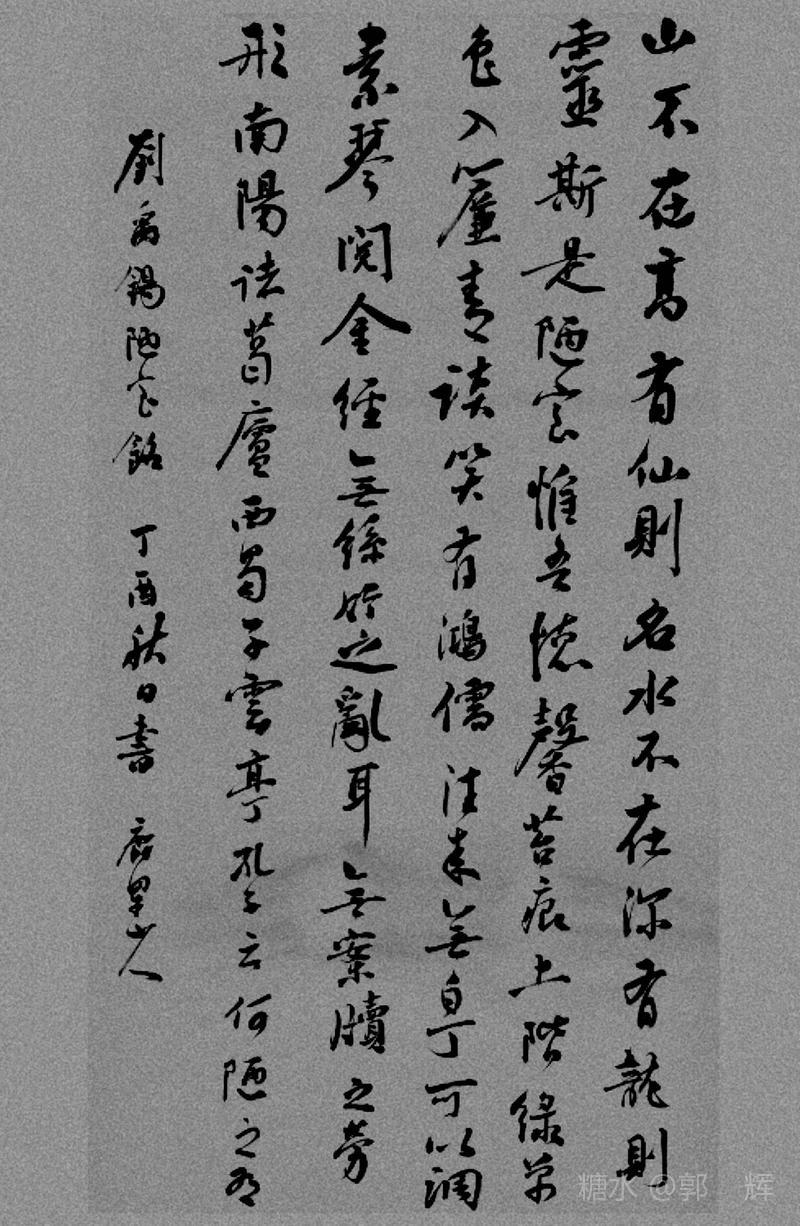 山不在高有仙則名水不在深有龍則
靈斯是陋室惟吾德馨苔痕上階綠草
色入簾青談笑有鴻儒往來無白丁可以調
素琴閱金經無絲竹之亂耳無案牘之勞
形南陽諸葛廬西蜀子雲亭孔子云何陋之有
劉禹錫陋室銘 丁酉秋日書 山人
糖水 @郭 辉